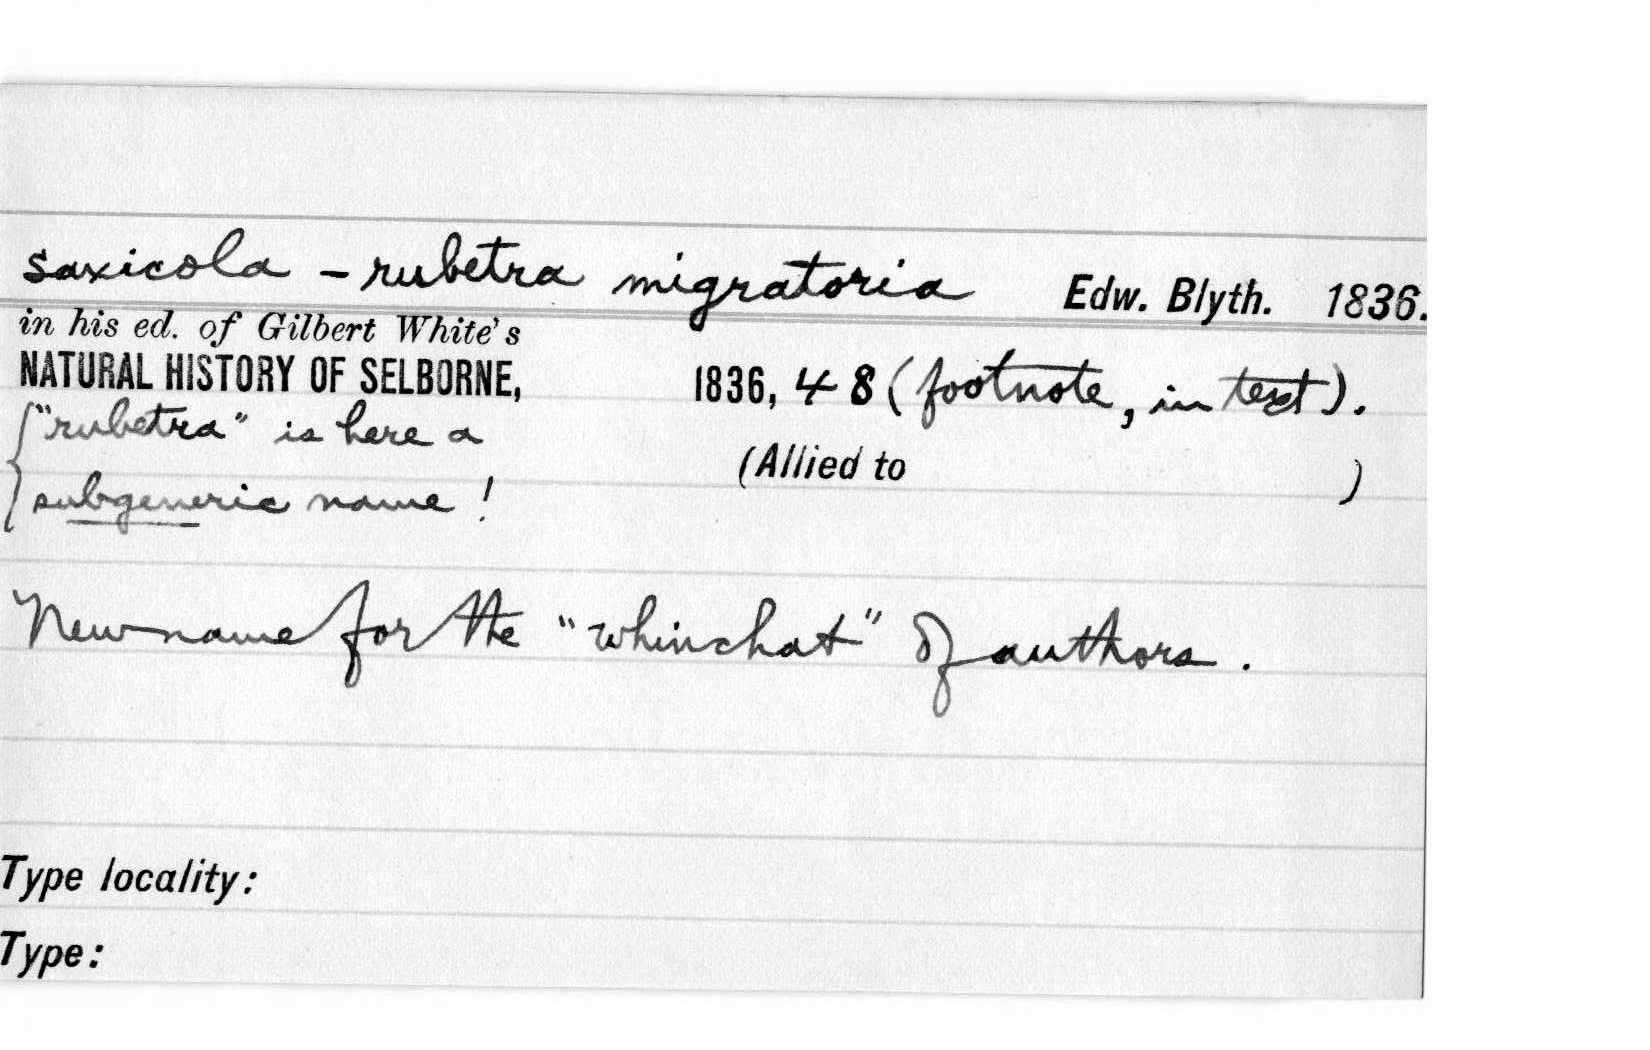 saxicola - rubetra migratoria Edw. Blyth. 1836.
in his ed. of Gilbert White's
NATURAL HISTORY OF SELBORNE, 1836, 48 (footnote, in text).
{"rubetra" is here a
subgeneric name! (Allied to )
New name for the "whinchat" of authors.
Type locality:
Type: